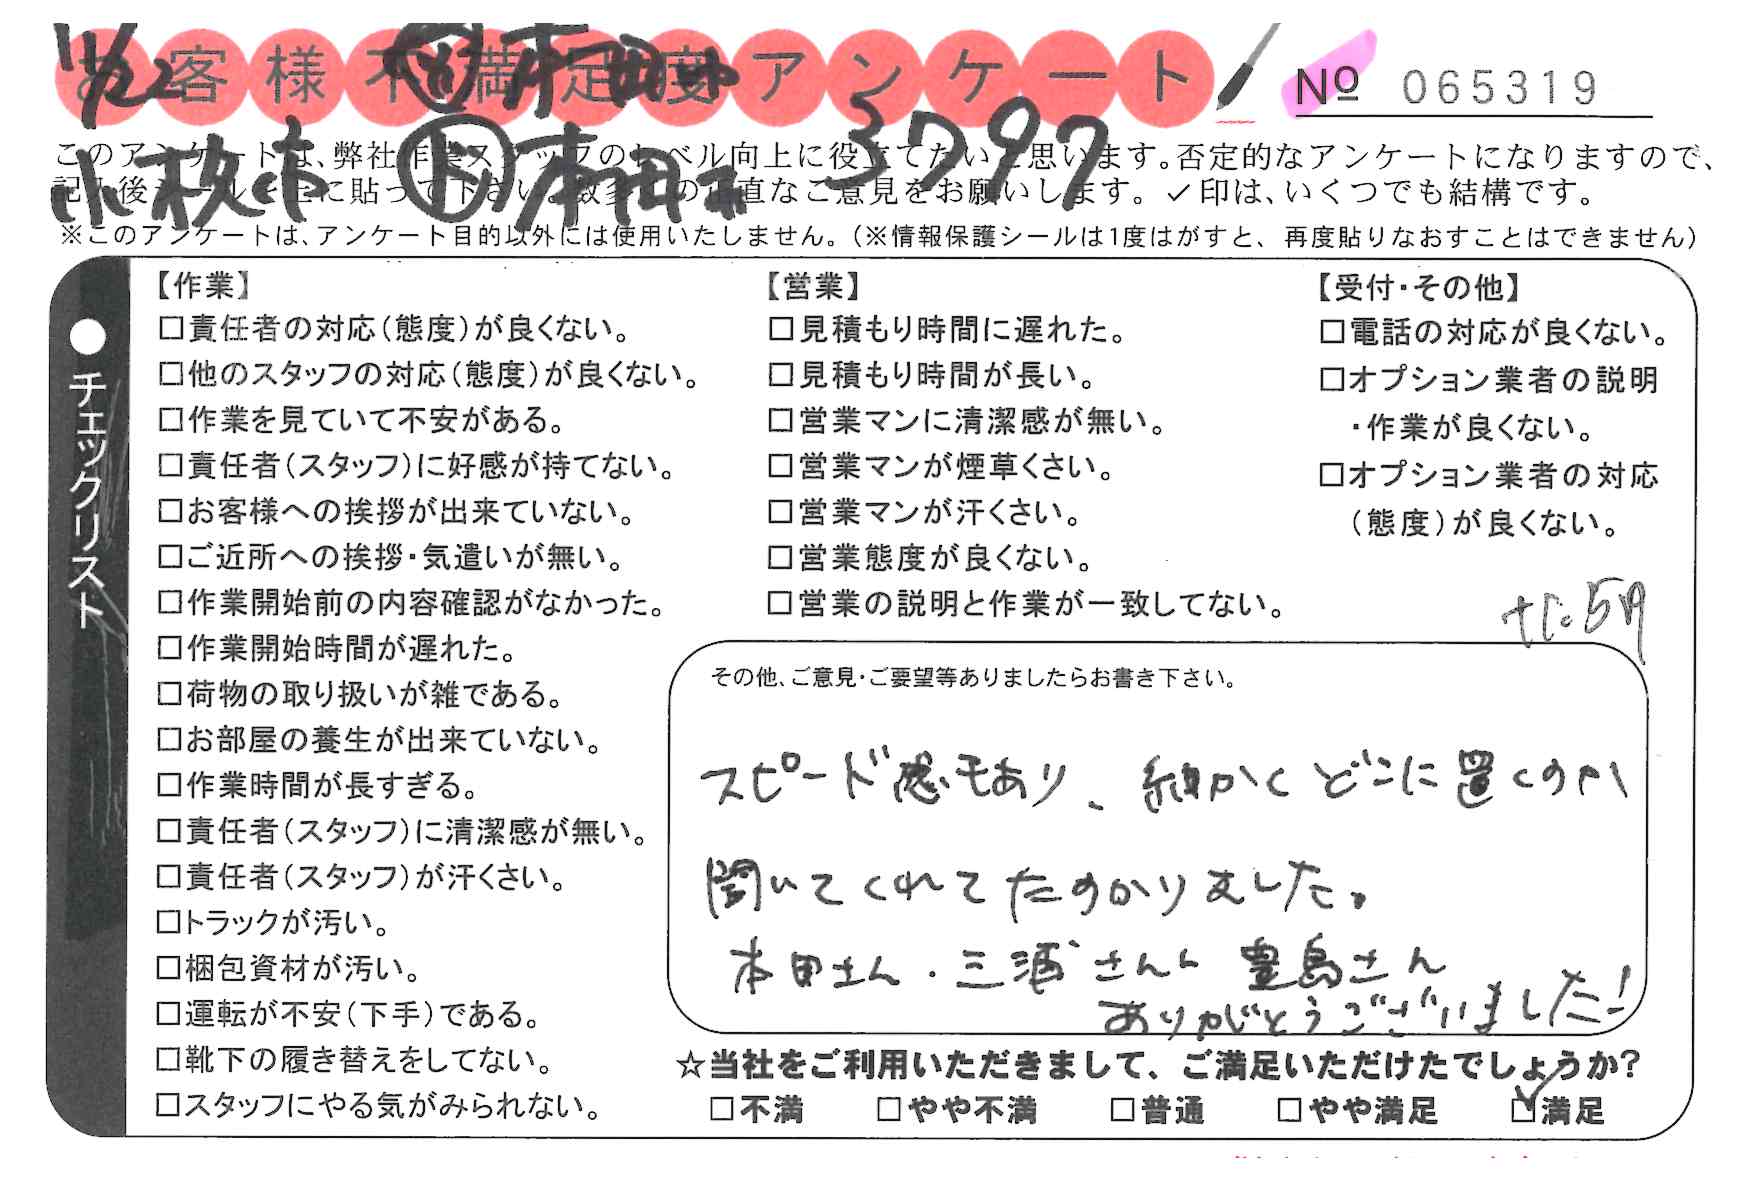 お客様不満足度アンケート
№ 065319
11/22
3797
小牧市 本田
このアンケートは、弊社作業スタッフのレベル向上に役立てたいと思います。否定的なアンケートになりますので、
記入後シールを上に貼って下さい。数多くの正直なご意見をお願いします。✓印は、いくつでも結構です。
※このアンケートは、アンケート目的以外には使用いたしません。（※情報保護シールは1度はがすと、再度貼りなおすことはできません）
●チェックリスト
【作業】
□責任者の対応（態度）が良くない。
□他のスタッフの対応（態度）が良くない。
□作業を見ていて不安がある。
□責任者（スタッフ）に好感が持てない。
□お客様への挨拶が出来ていない。
□ご近所への挨拶・気遣いが無い。
□作業開始前の内容確認がなかった。
□作業開始時間が遅れた。
□荷物の取り扱いが雑である。
□お部屋の養生が出来ていない。
□作業時間が長すぎる。
□責任者（スタッフ）に清潔感が無い。
□責任者（スタッフ）が汗くさい。
□トラックが汚い。
□梱包資材が汚い。
□運転が不安（下手）である。
□靴下の履き替えをしてない。
□スタッフにやる気がみられない。
【営業】
□見積もり時間に遅れた。
□見積もり時間が長い。
□営業マンに清潔感が無い。
□営業マンが煙草くさい。
□営業マンが汗くさい。
□営業態度が良くない。
□営業の説明と作業が一致してない。
【受付・その他】
□電話の対応が良くない。
□オプション業者の説明
・作業が良くない。
□オプション業者の対応
（態度）が良くない。
その他、ご意見・ご要望等ありましたらお書き下さい。
スピード感もあり、細かくどこに置くのか
聞いてくれてたすかりました。
本田さん・三浦さん 豊島さん
ありがとうございました！
☆当社をご利用いただきまして、ご満足いただけたでしょうか?
□不満 □やや不満 □普通 □やや満足 ☑満足